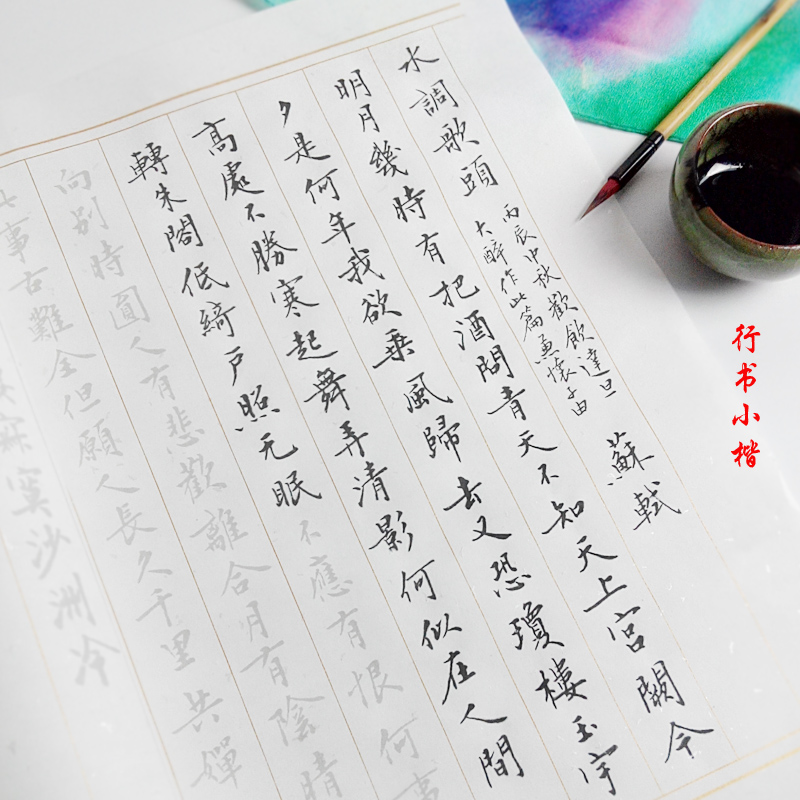 水調歌頭
丙辰中秋歡飲達旦
大醉作此篇兼懷子由
蘇軾
明月幾時有把酒問青天不知天上宮闕今
夕是何年我欲乘風歸去又恐瓊樓玉宇
高處不勝寒起舞弄清影何似在人間
轉朱閣低綺戶照无眠不應有恨何事
向別時圓人有悲歡離合月有陰晴
事古難全但願人長久千里共嬋
寞沙洲冷
行书小楷